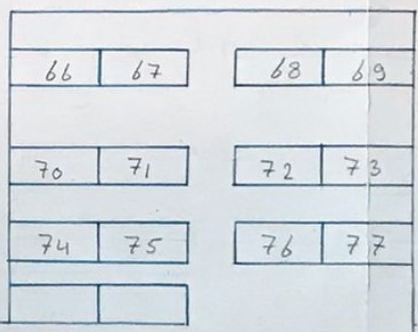 66 67 68 69
70 71 72 73
74 75 76 77